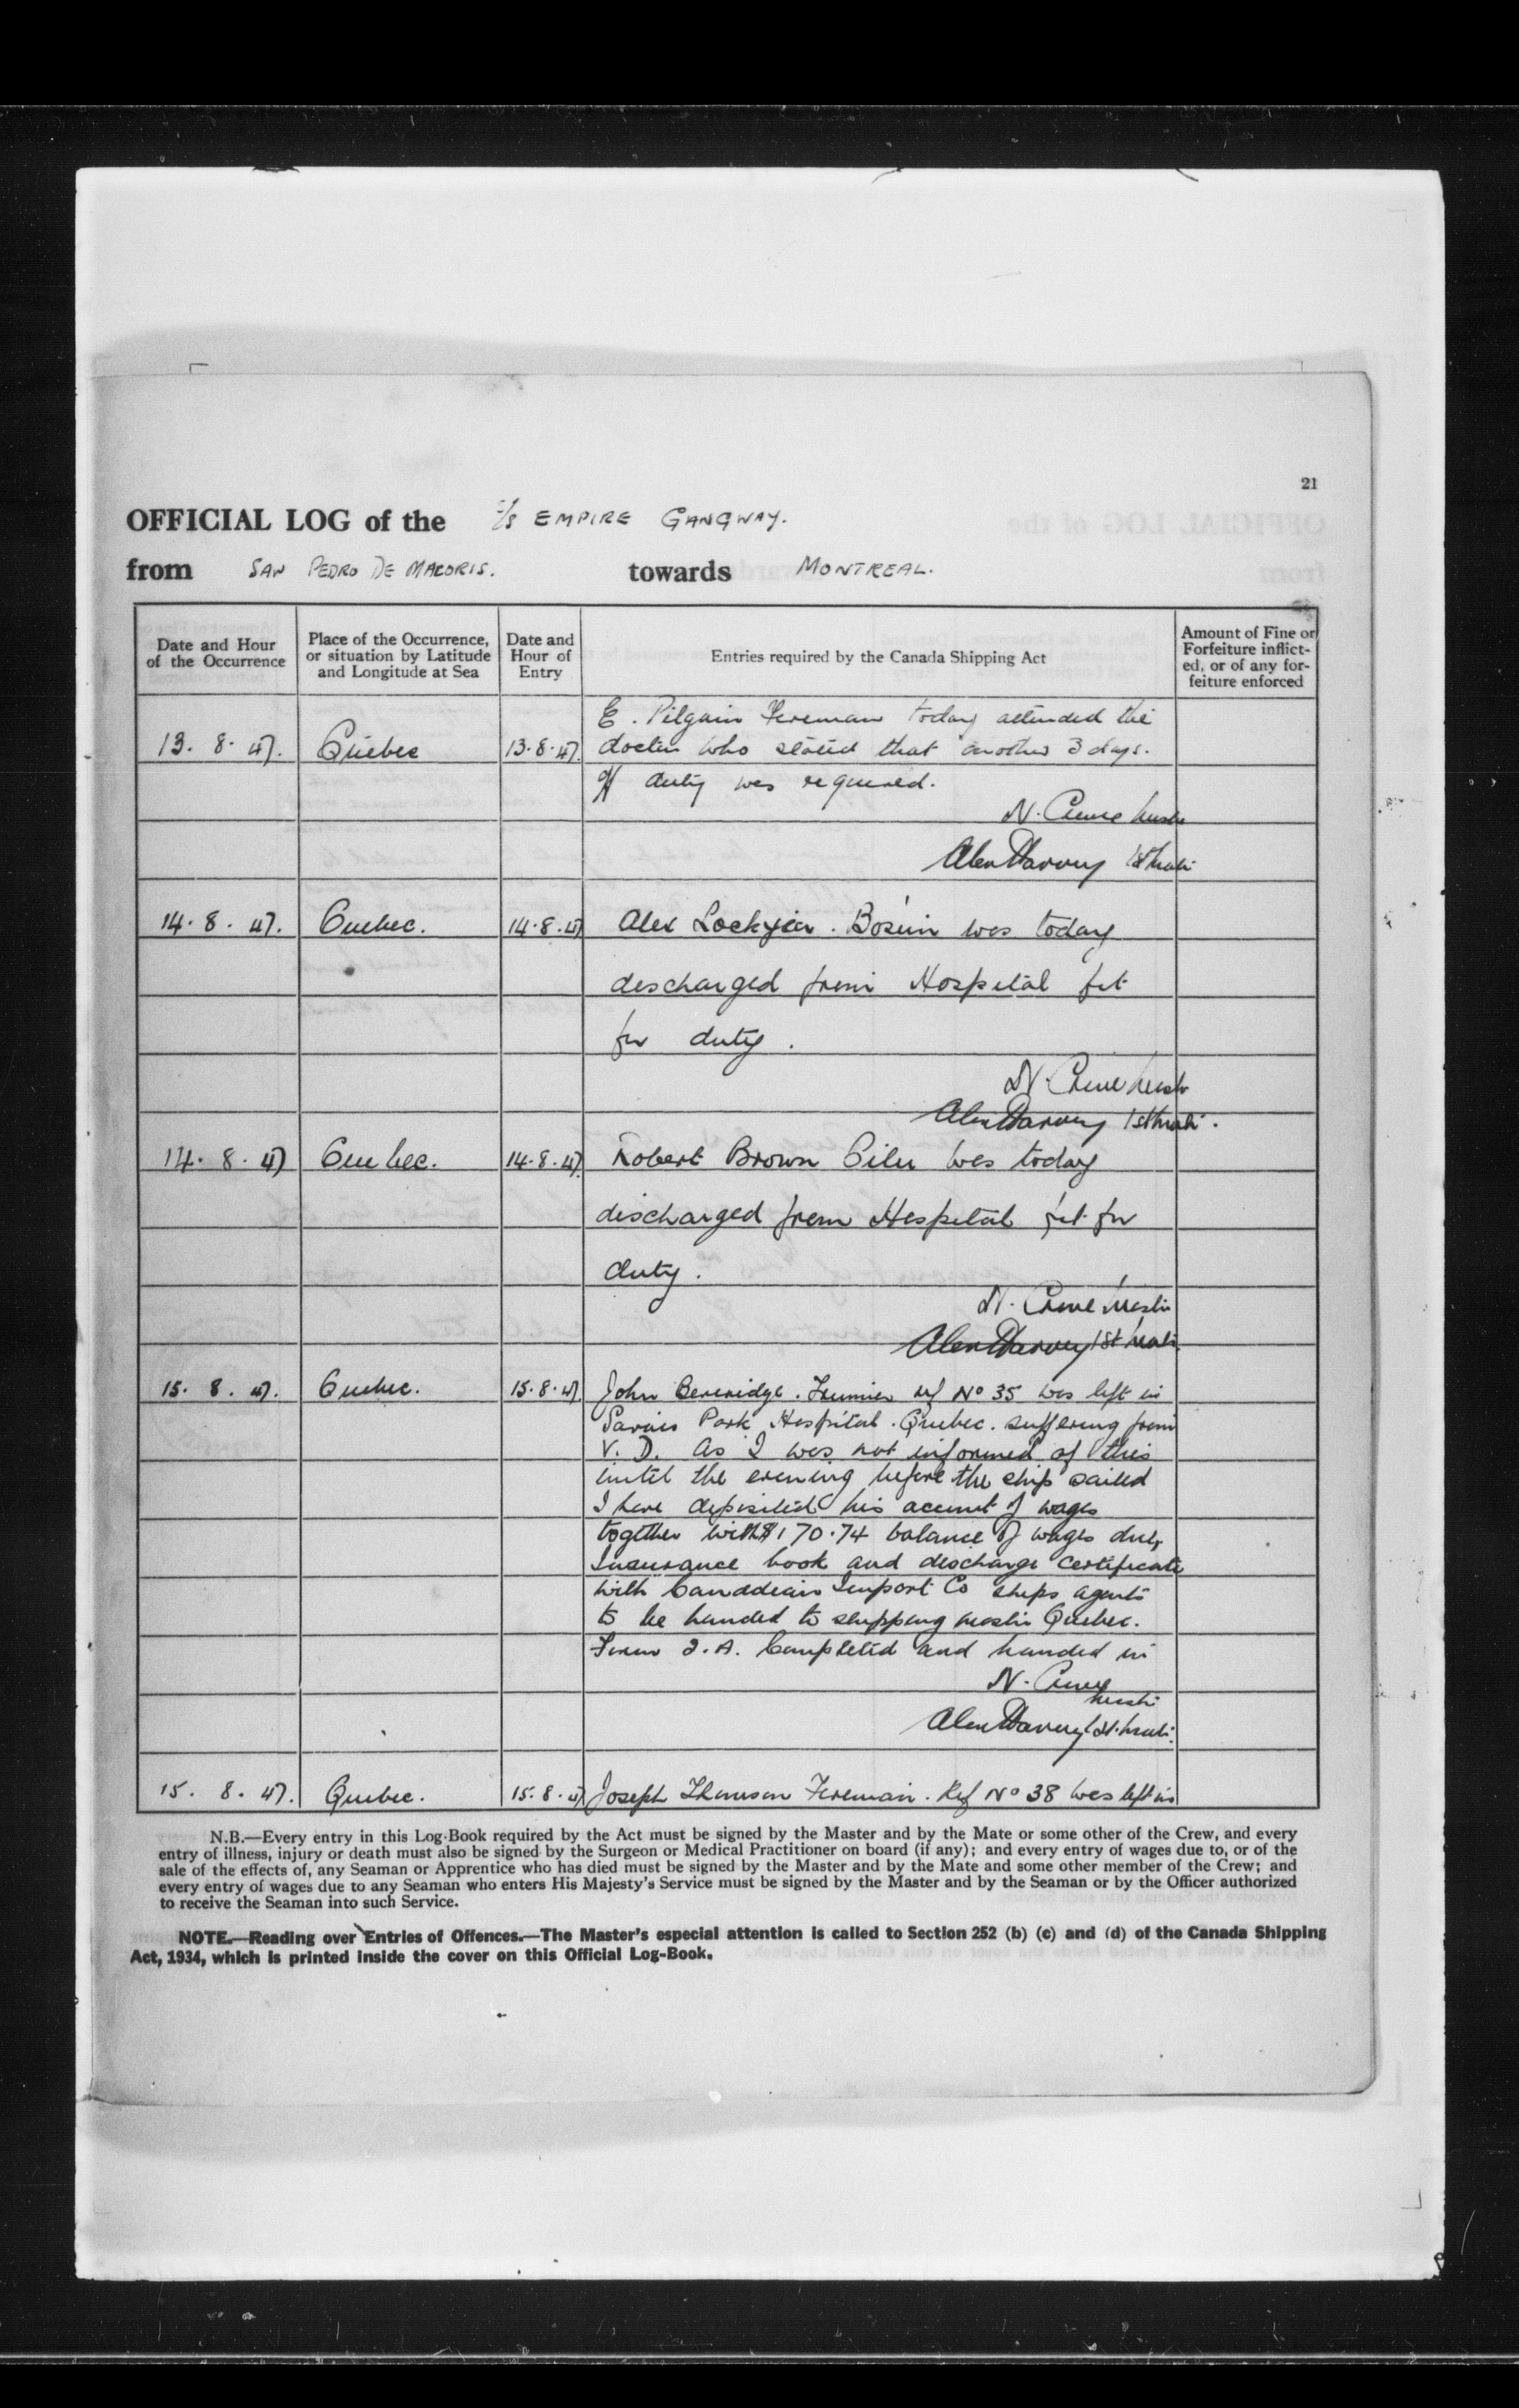 21
OFFICIAL LOG of the S/S EMPIRE GANGWAY.
from SAN PEDRO DE MACORIS. towards MONTREAL.
Date and Hour of the Occurrence
Place of the Occurrence, or situation by Latitude and Longitude at Sea
Date and Hour of Entry
Entries required by the Canada Shipping Act
Amount of Fine or Forfeiture inflicted, or of any forfeiture enforced
E. Pilgrim Fireman today attended the
13. 8. 47. Quebec 13.8.47. doctor who stated that another 3 days.
off duty was required.
N. Crewe Master
Alex Harvey 1st Mate
14. 8. 47. Quebec. 14.8.47 Alex Lockyear. Bosun was today
discharged from Hospital fit
for duty.
N. Crewe Master
Alex Harvey 1st Mate.
14. 8. 47 Quebec. 14.8.47. Robert Brown Oiler was today
discharged from Hospital fit for
duty.
N. Crewe Master
Alex Harvey 1st Mate.
15. 8. 47. Quebec. 15.8.47 John Beveridge. Trimmer ref No 35 was left in
Park Hospital. Quebec. suffering from
V. D. As I was not informed of this
until the evening before the ship sailed
I have deposited his account of wages
together with $170.74 balance of wages due,
Insurance book and discharge certificate
with Canadian Import Co ships agents
to be handed to shipping master Quebec.
Form 2.A. Completed and handed in
N. Crewe
Master
Alex Harvey 1st. Mate.
15. 8. 47. Quebec. 15.8.47 Joseph Thomson Fireman. Ref No 38 was left in
N.B.—Every entry in this Log-Book required by the Act must be signed by the Master and by the Mate or some other of the Crew, and every
entry of illness, injury or death must also be signed by the Surgeon or Medical Practitioner on board (if any); and every entry of wages due to, or of the
sale of the effects of, any Seaman or Apprentice who has died must be signed by the Master and by the Mate and some other member of the Crew; and
every entry of wages due to any Seaman who enters His Majesty's Service must be signed by the Master and by the Seaman or by the Officer authorized
to receive the Seaman into such Service.
NOTE.—Reading over Entries of Offences.—The Master's especial attention is called to Section 252 (b) (c) and (d) of the Canada Shipping
Act, 1934, which is printed inside the cover on this Official Log-Book.